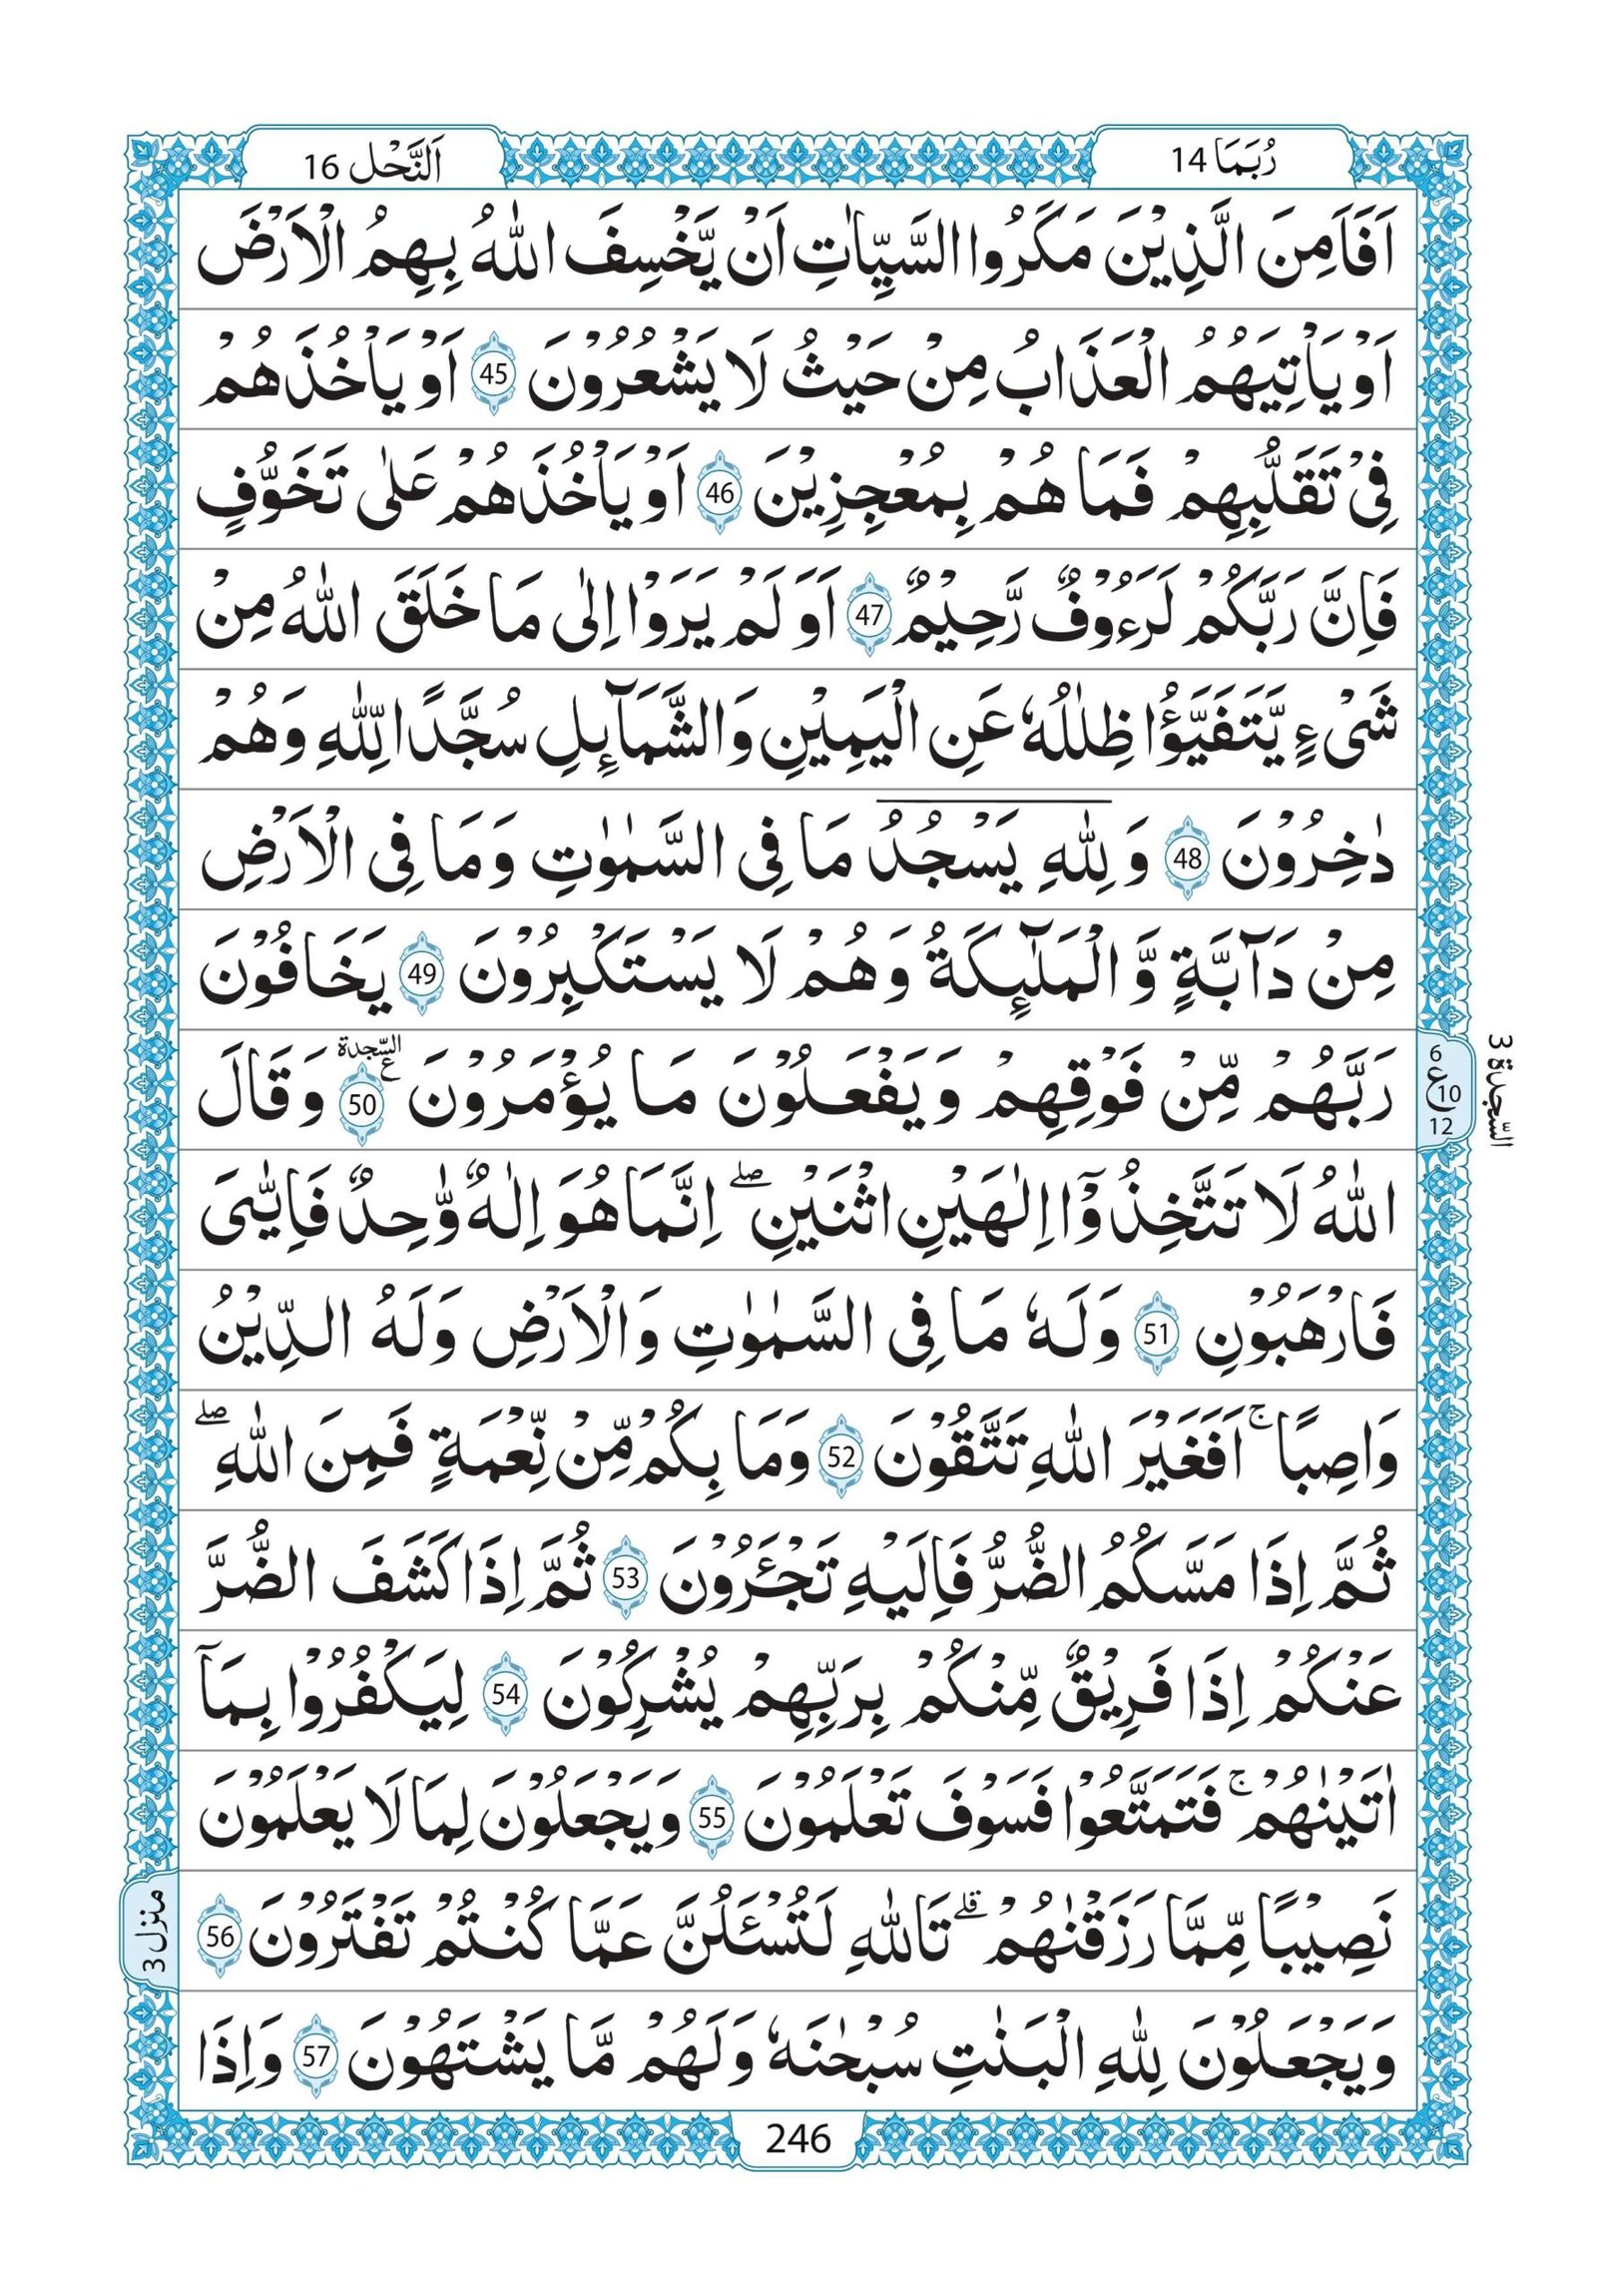 اَلنَّحْل 16
رُبَمَا 14
اَفَاَمِنَ الَّذِيْنَ مَكَرُوا السَّيِّاٰتِ اَنْ يَّخْسِفَ اللّٰهُ بِهِمُ الْاَرْضَ
اَوْ يَاْتِيَهُمُ الْعَذَابُ مِنْ حَيْثُ لَا يَشْعُرُوْنَ 45 اَوْ يَاْخُذَهُمْ
فِيْ تَقَلُّبِهِمْ فَمَا هُمْ بِمُعْجِزِيْنَ 46 اَوْ يَاْخُذَهُمْ عَلٰى تَخَوُّفٍ
فَاِنَّ رَبَّكُمْ لَرَءُوْفٌ رَّحِيْمٌ 47 اَوَ لَمْ يَرَوْا اِلٰى مَا خَلَقَ اللّٰهُ مِنْ
شَيْءٍ يَّتَفَيَّؤُا ظِلٰلُهٗ عَنِ الْيَمِيْنِ وَالشَّمَآئِلِ سُجَّدًا لِّلّٰهِ وَهُمْ
دٰخِرُوْنَ 48 وَ لِلّٰهِ يَسْجُدُ مَا فِى السَّمٰوٰتِ وَمَا فِى الْاَرْضِ
مِنْ دَآبَّةٍ وَّ الْمَلٰٓئِكَةُ وَهُمْ لَا يَسْتَكْبِرُوْنَ 49 يَخَافُوْنَ
رَبَّهُمْ مِّنْ فَوْقِهِمْ وَيَفْعَلُوْنَ مَا يُؤْمَرُوْنَ ع السّجدة 50 وَقَالَ
6 ع 10 12
السّجدة 3
اللّٰهُ لَا تَتَّخِذُوْٓا اِلٰهَيْنِ اثْنَيْنِ ۖ اِنَّمَا هُوَ اِلٰهٌ وَّاحِدٌ فَاِيَّٰىَ
فَارْهَبُوْنِ 51 وَلَهٗ مَا فِى السَّمٰوٰتِ وَالْاَرْضِ وَلَهُ الدِّيْنُ
وَاصِبًا ۚ اَفَغَيْرَ اللّٰهِ تَتَّقُوْنَ 52 وَمَا بِكُمْ مِّنْ نِّعْمَةٍ فَمِنَ اللّٰهِ ۖ
ثُمَّ اِذَا مَسَّكُمُ الضُّرُّ فَاِلَيْهِ تَجْـَٔرُوْنَ 53 ثُمَّ اِذَا كَشَفَ الضُّرَّ
عَنْكُمْ اِذَا فَرِيْقٌ مِّنْكُمْ بِرَبِّهِمْ يُشْرِكُوْنَ 54 لِيَكْفُرُوْا بِمَآ
اٰتَيْنٰهُمْ ۚ فَتَمَتَّعُوْا فَسَوْفَ تَعْلَمُوْنَ 55 وَيَجْعَلُوْنَ لِمَا لَا يَعْلَمُوْنَ
نَصِيْبًا مِّمَّا رَزَقْنٰهُمْ ۗ تَاللّٰهِ لَتُسْـَٔلُنَّ عَمَّا كُنْتُمْ تَفْتَرُوْنَ 56
منزل 3
وَيَجْعَلُوْنَ لِلّٰهِ الْبَنٰتِ سُبْحٰنَهٗ وَلَهُمْ مَّا يَشْتَهُوْنَ 57 وَاِذَا
246